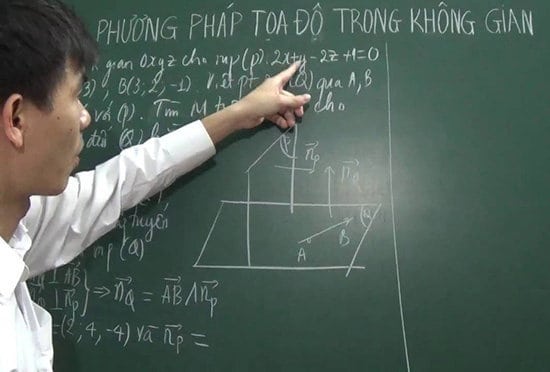 PHƯƠNG PHÁP TỌA ĐỘ TRONG KHÔNG GIAN
gian Oxyz cho mp(p): 2x+y-2z+1=0
3) B(3; 2; -1). Viết pt (Q) qua A, B
với (p). Tìm M cho
đến (Q)
(P
n⃗p
n⃗Q
(Q)
A
B
tuyến
mp (Q)
⊥ AB⃗
⊥ n⃗p } ⇒ n⃗Q = AB⃗ ∧ n⃗p
=(2; 4; -4) và n⃗p =